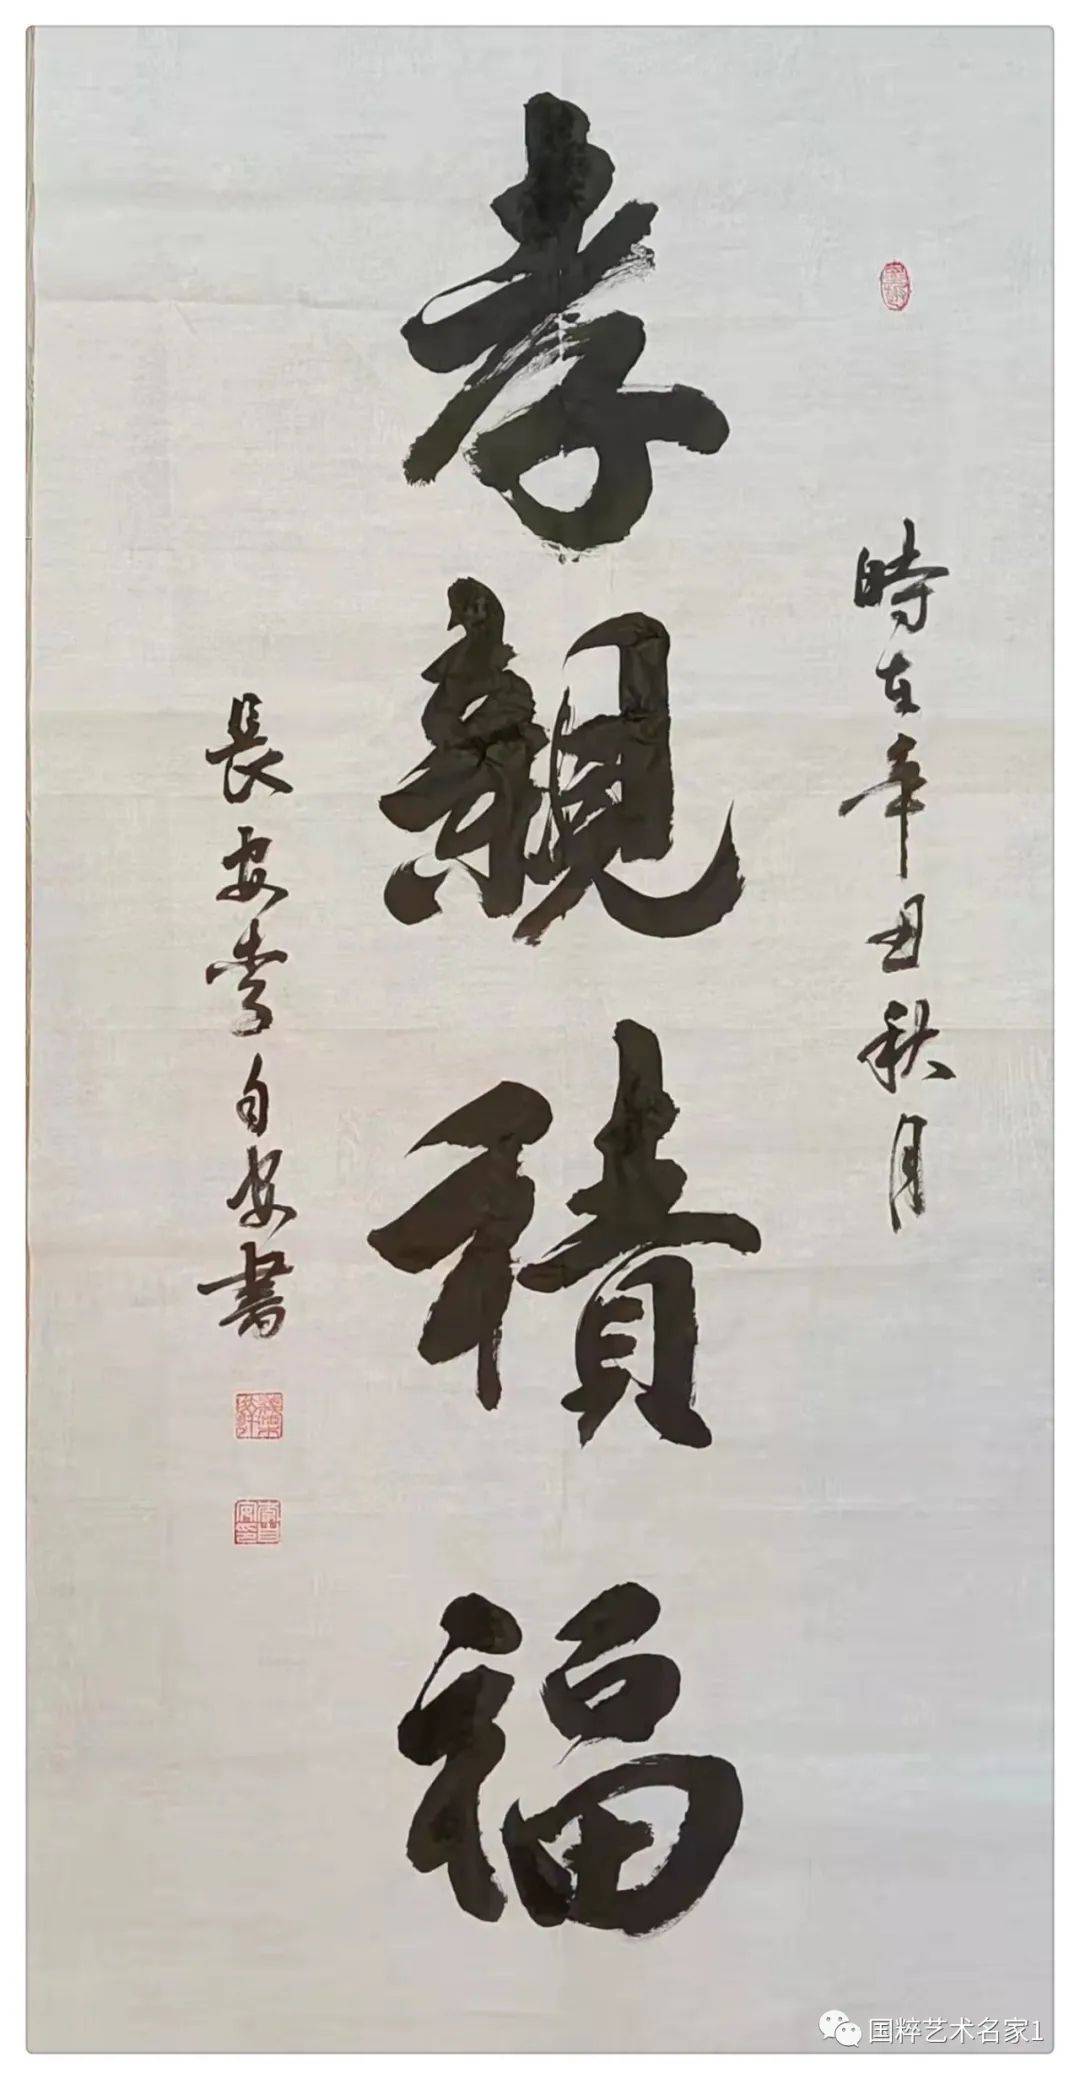 時在辛丑秋月
孝親積福
長安李自安書
国粹艺术名家1